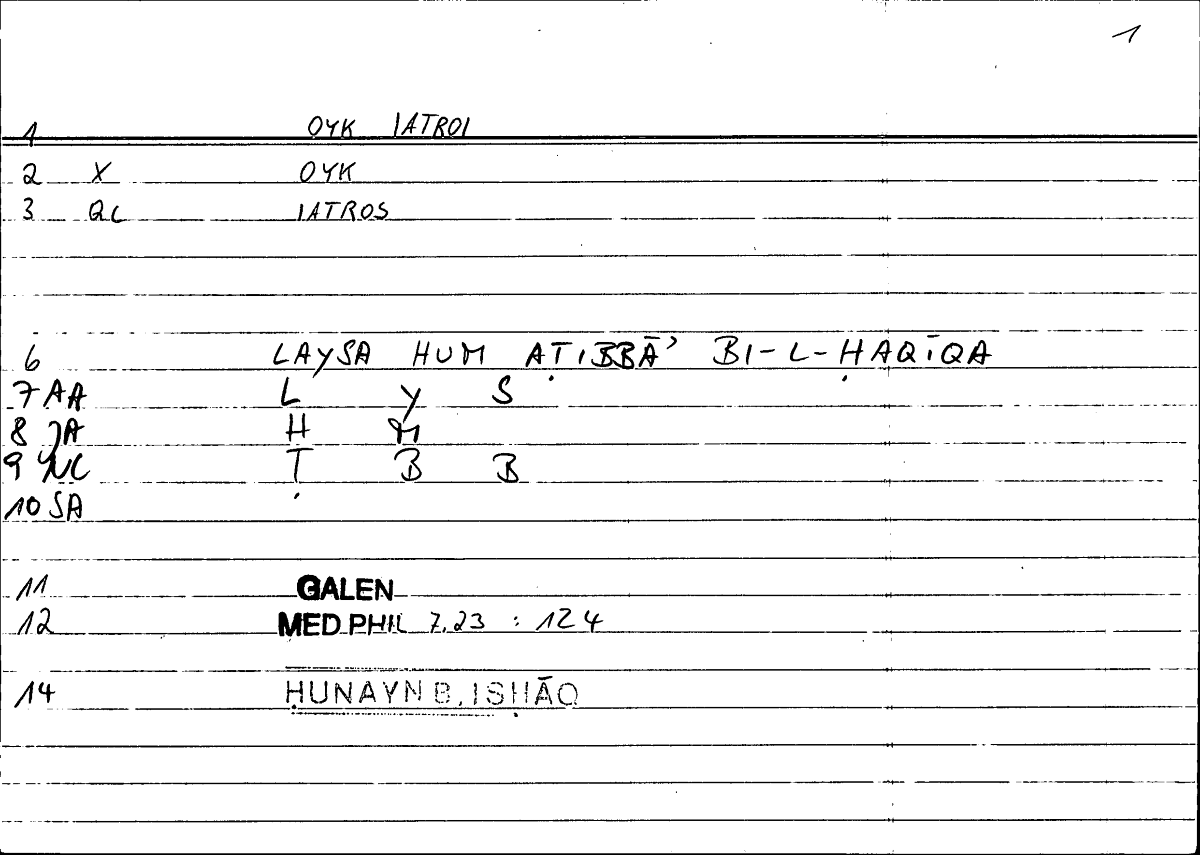 1
1 OYK IATROI
2 X OYK
3 QC IATROS
6 LAYSA HUM AṬIBBĀʾ BI-L-ḤAQĪQA
7 AA L Y S
8 JA H M
9 NC Ṭ B B
10 SA
11 GALEN
12 MED PHIL 7.23 : 124
14 ḤUNAYN B. ISḤĀQ